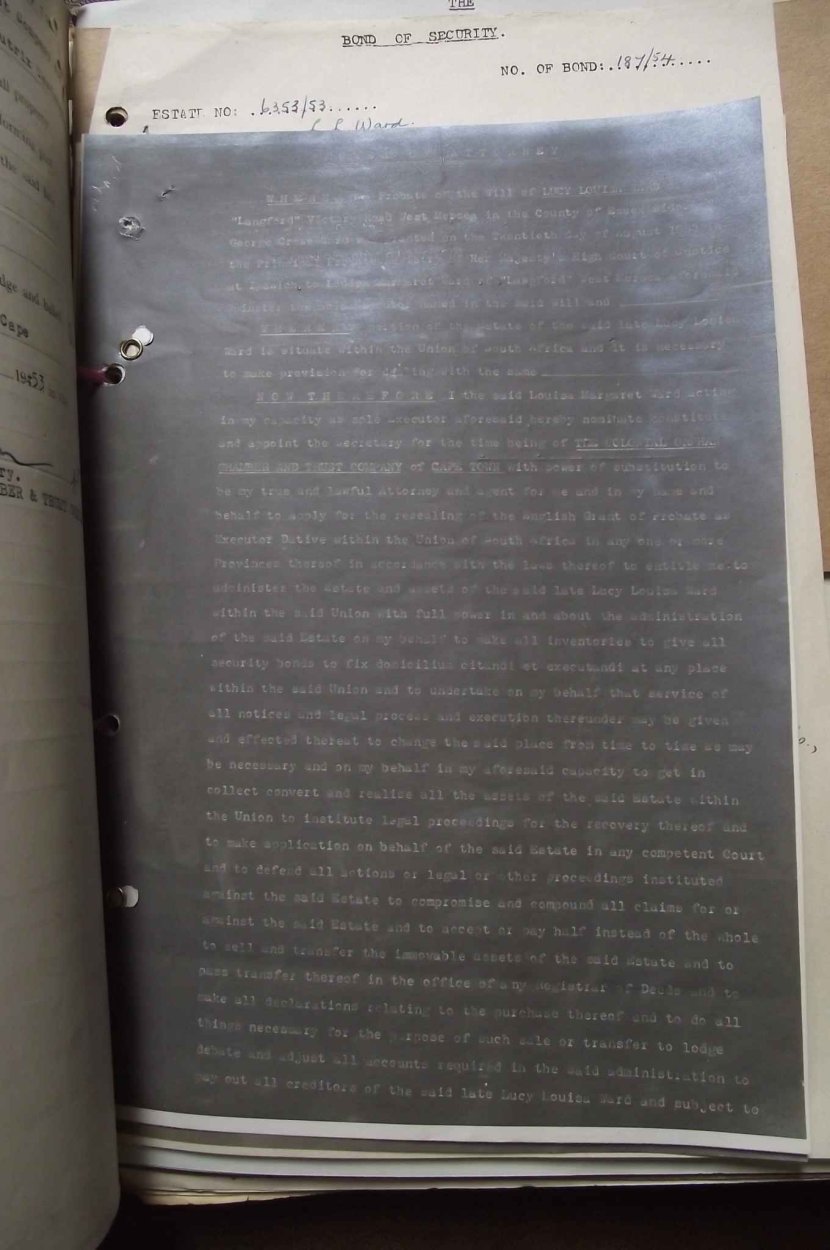 THE
BOND OF SECURITY.
NO. OF BOND: 187/54
ESTATE NO: 6353/53
L L Ward
ATTORNEY
WHEREAS Probate of the Will of LUCY LOUISA WARD
"Langford" Victory Road West Mersea in the County of Essex
George was granted on the Twentieth day of August
the Principal Probate Registry of Her Majesty's High Court of Justice
at to Margaret Ward of "Langford" West Mersea
named in the said Will and
WHEREAS portion of the Estate of the said late Lucy Louisa
Ward is situate within the Union of South Africa and it is necessary
to make provision for dealing with the same
NOW THEREFORE I the said Louisa Margaret Ward acting
in my capacity as sole Executor aforesaid hereby nominate constitute
and appoint the Secretary for the time being of THE COLONIAL ORPHAN
CHAMBER AND TRUST COMPANY of CAPE TOWN with power of substitution to
be my true and lawful Attorney and agent for me and in my name and
behalf to apply for the resealing of the English Grant of Probate as
Executor Dative within the Union of South Africa in any one or more
Provinces thereof in accordance with the laws thereof to entitle me to
administer the Estate and assets of the said late Lucy Louisa Ward
within the said Union with full power in and about the administration
of the said Estate on my behalf to make all inventories to give all
security bonds to fix domicilium citandi et executandi at any place
within the said Union and to undertake on my behalf that service of
all notices and legal process and execution thereunder may be given
and effected thereat to change the said place from time to time as may
be necessary and on my behalf in my aforesaid capacity to get in
collect convert and realise all the assets of the said Estate within
the Union to institute legal proceedings for the recovery thereof and
to make application on behalf of the said Estate in any competent Court
and to defend all actions or legal or other proceedings instituted
against the said Estate to compromise and compound all claims for or
against the said Estate and to accept or pay half instead of the whole
to sell and transfer the immovable assets of the said Estate and to
pass transfer thereof in the office of any Registrar of Deeds and to
make all declarations relating to the purchase thereof and to do all
things necessary for the purpose of such sale or transfer to lodge
debate and adjust all accounts required in the said administration to
pay out all creditors of the said late Lucy Louisa Ward and subject to